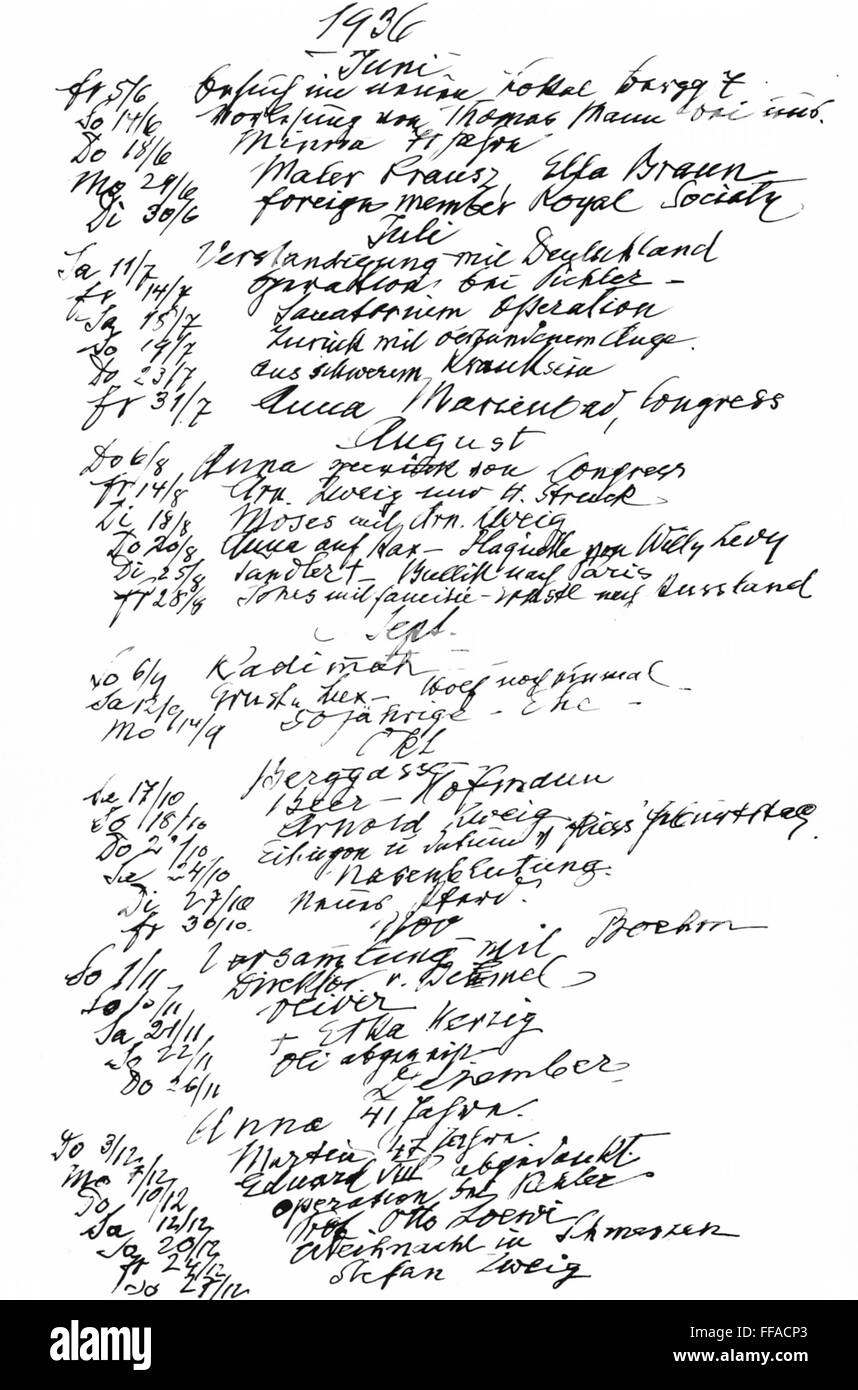 1936
Juni
Fr 5/6 Besuch im neuen Lokal Bergg 7
So 14/6 Vorlesung von Thomas Mann bei uns.
Do 18/6 Minna 71 Jahre
Mo 29/6 Maler Krausz, Ella Braun –
Di 30/6 foreign member Royal Society
Juli
Sa 11/7 Verständigung mit Deutschland
14/7 Operation bei Pichler –
Sa Sanatorium Operation
So 19/7 Zurück mit verbundenem Auge.
Do 23/7 aus schwerem Kranksein
Fr 31/7 Anna Marienbad, Congress
August
Do 6/8 Anna zurück von Congress
Fr 14/8 Arn. Zweig und H. Struck
Di 18/8 Moses mit Arn. Zweig
Do 20/8 Anna auf Rax – Plaquette von Willy Levy
Di 25/8 Tandler † – Bullitt nach Paris
Fr 28/8 Jones mit Familie – nach Russland
Sept.
So 6/9 Kadimah
Sa 12/9 Ernst u Lux – Wolf noch einmal –
Mo 14/9 50 jährige – Ehe –
Okt
Berggasse
Sa 17/10 Beer-Hofmann
So 18/10 Arnold Zweig
Do 22/10 Eitingon u Datum v Fliess' Geburtstag.
Sa 24/10 Nasenblutung.
Di 27/10 Neues Pferd.
Fr 30/10
Nov
So 1/11 Versammlung mit Boehm
Direktor v. Demel
Sa 21/11 Oliver
So 22/11 † Etka Herzig
Do 26/11 Oli abgereist
Dezember
Do 3/12 Anna 41 Jahre.
Mo 7/12 Martin 47 Jahre.
Do 10/12 Eduard VIII abgedankt.
Sa 12/12 Operation bei Pichler
So 20/12 Prof. Otto Loewi
24/12 Weihnacht in Schmerzen
So 27/12 Stefan Zweig
alamy
Image ID: FFACP3
www.alamy.com